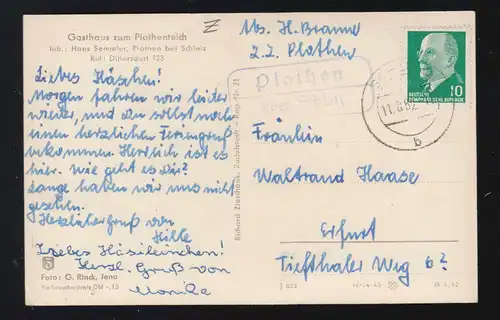 Gasthaus zum Plothenteich
Inh.: Hans Semmler, Plothen bei Schleiz
Ruf: Dittersdorf 123
Abs. H. Braune
z.Z. Plothen
Plothen
über Schleiz
11.8.62
b
10
DEUTSCHE
DEMOKRATISCHE REPUBLIK
Liebes Häschen!
Morgen fahren wir leider
wieder, und Du sollst noch
einen herzlichen Feriengruß
bekommen. Herrlich ist es
hier. Wie geht es Dir?
Lange haben wir uns nicht
gesehen.
Herzliche Grüße von
Hille
Liebes Häsileinchen!
Herzl. Gruß von
Monika
Foto: G. Rinck, Jena
Verbraucherpreis DM -,15
Richard Zieschank, Rudolstadt
Fräulein
Waltraud Haase
Erfurt
Tiefthaler Weg 6?